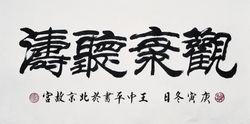 觀聽濤
庚寅冬日 王中平書於北京故宮